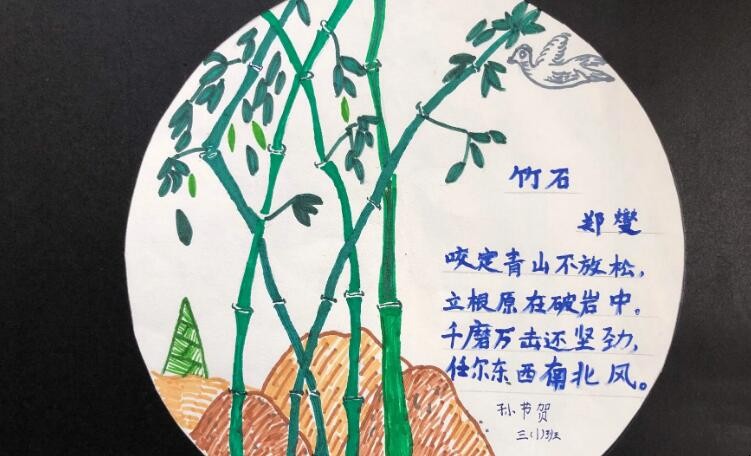 竹石
郑燮
咬定青山不放松，
立根原在破岩中。
千磨万击还坚劲，
任尔东西南北风。
孙节贺
三（1）班